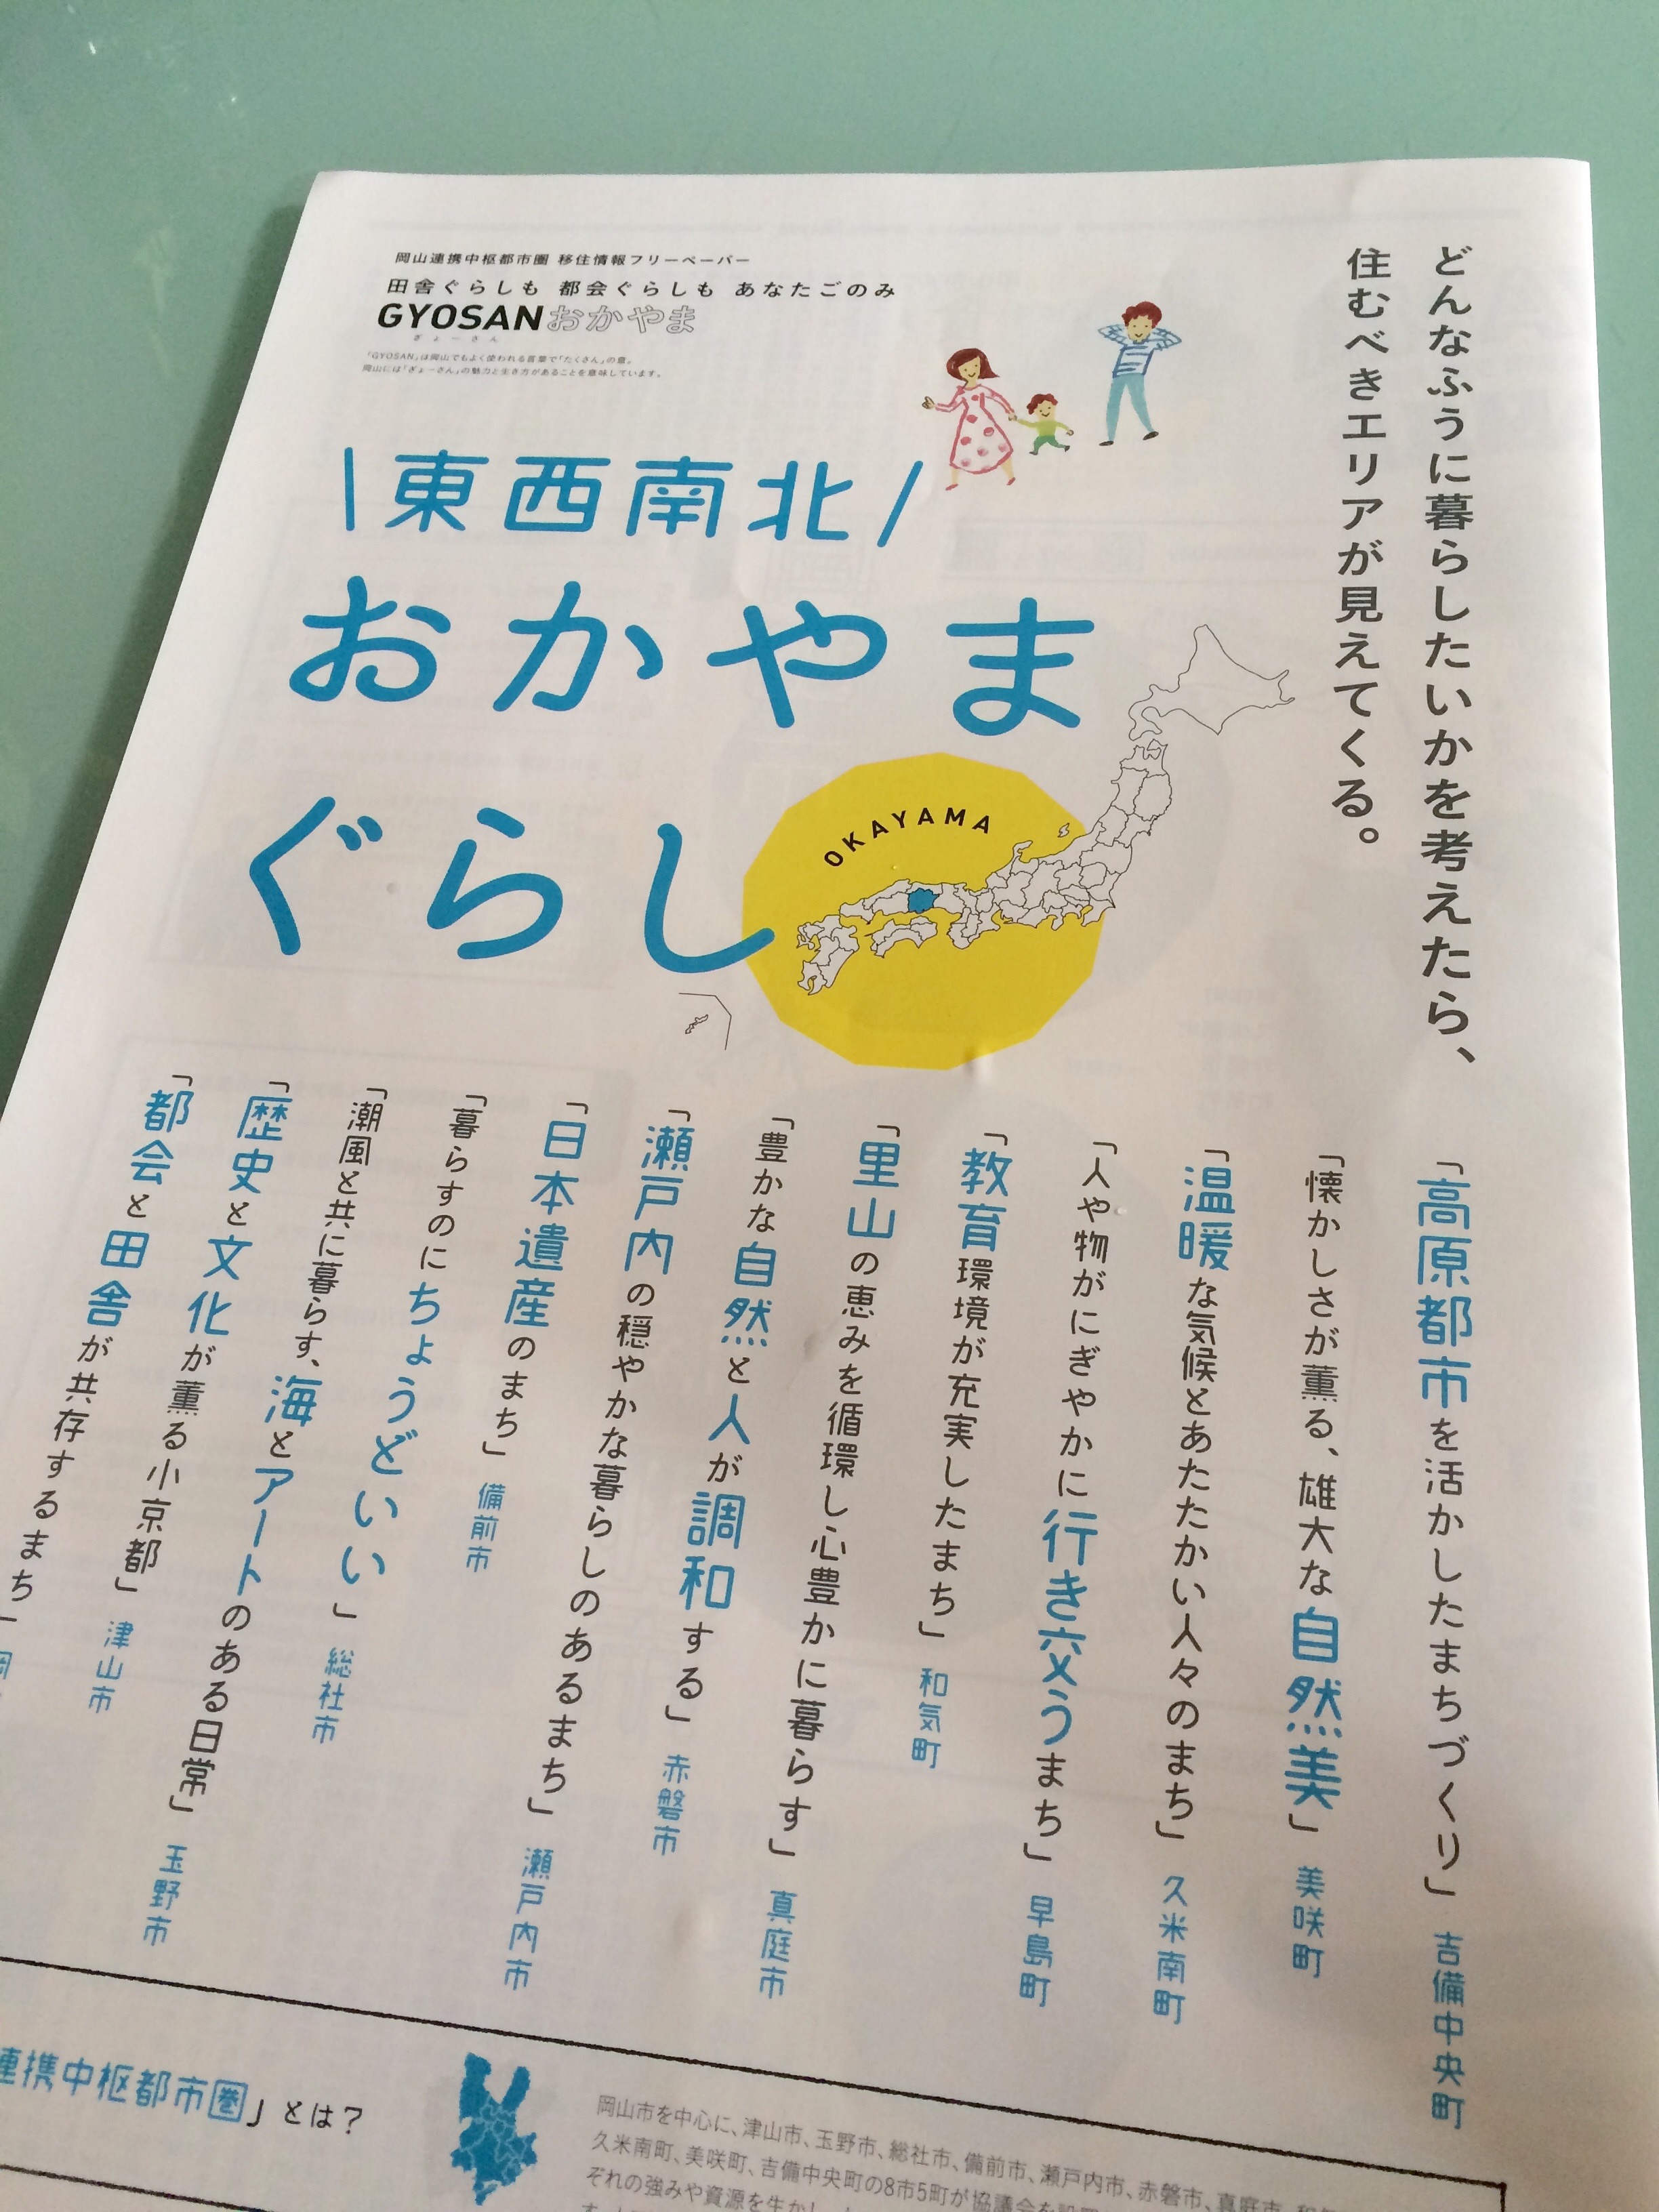 岡山連携中枢都市圏 移住情報フリーペーパー
田舎ぐらしも 都会ぐらしも あなたごのみ
GYOSANおかやま
ぎょーさん
「GYOSAN」は岡山でもよく使われる言葉で「たくさん」の意。
岡山には「ぎょーさん」の魅力と生き方があることを意味しています。
どんなふうに暮らしたいかを考えたら、
住むべきエリアが見えてくる。
\東西南北/
おかやま
ぐらし
OKAYAMA
「高原都市を活かしたまちづくり」 吉備中央町
「懐かしさが薫る、雄大な自然美」 美咲町
「温暖な気候とあたたかい人々のまち」 久米南町
「人や物がにぎやかに行き交うまち」 早島町
「教育環境が充実したまち」 和気町
「里山の恵みを循環し心豊かに暮らす」 真庭市
「豊かな自然と人が調和する」 赤磐市
「瀬戸内の穏やかな暮らしのあるまち」 瀬戸内市
「日本遺産のまち」 備前市
「暮らすのにちょうどいい」 総社市
「潮風と共に暮らす、海とアートのある日常」 玉野市
「歴史と文化が薫る小京都」 津山市
「都会と田舎が共存するまち」
連携中枢都市圏」とは?
岡山市を中心に、津山市、玉野市、総社市、備前市、瀬戸内市、赤磐市、真庭市、
久米南町、美咲町、吉備中央町の8市5町が協議会を設置
ぞれの強みや資源を生かし